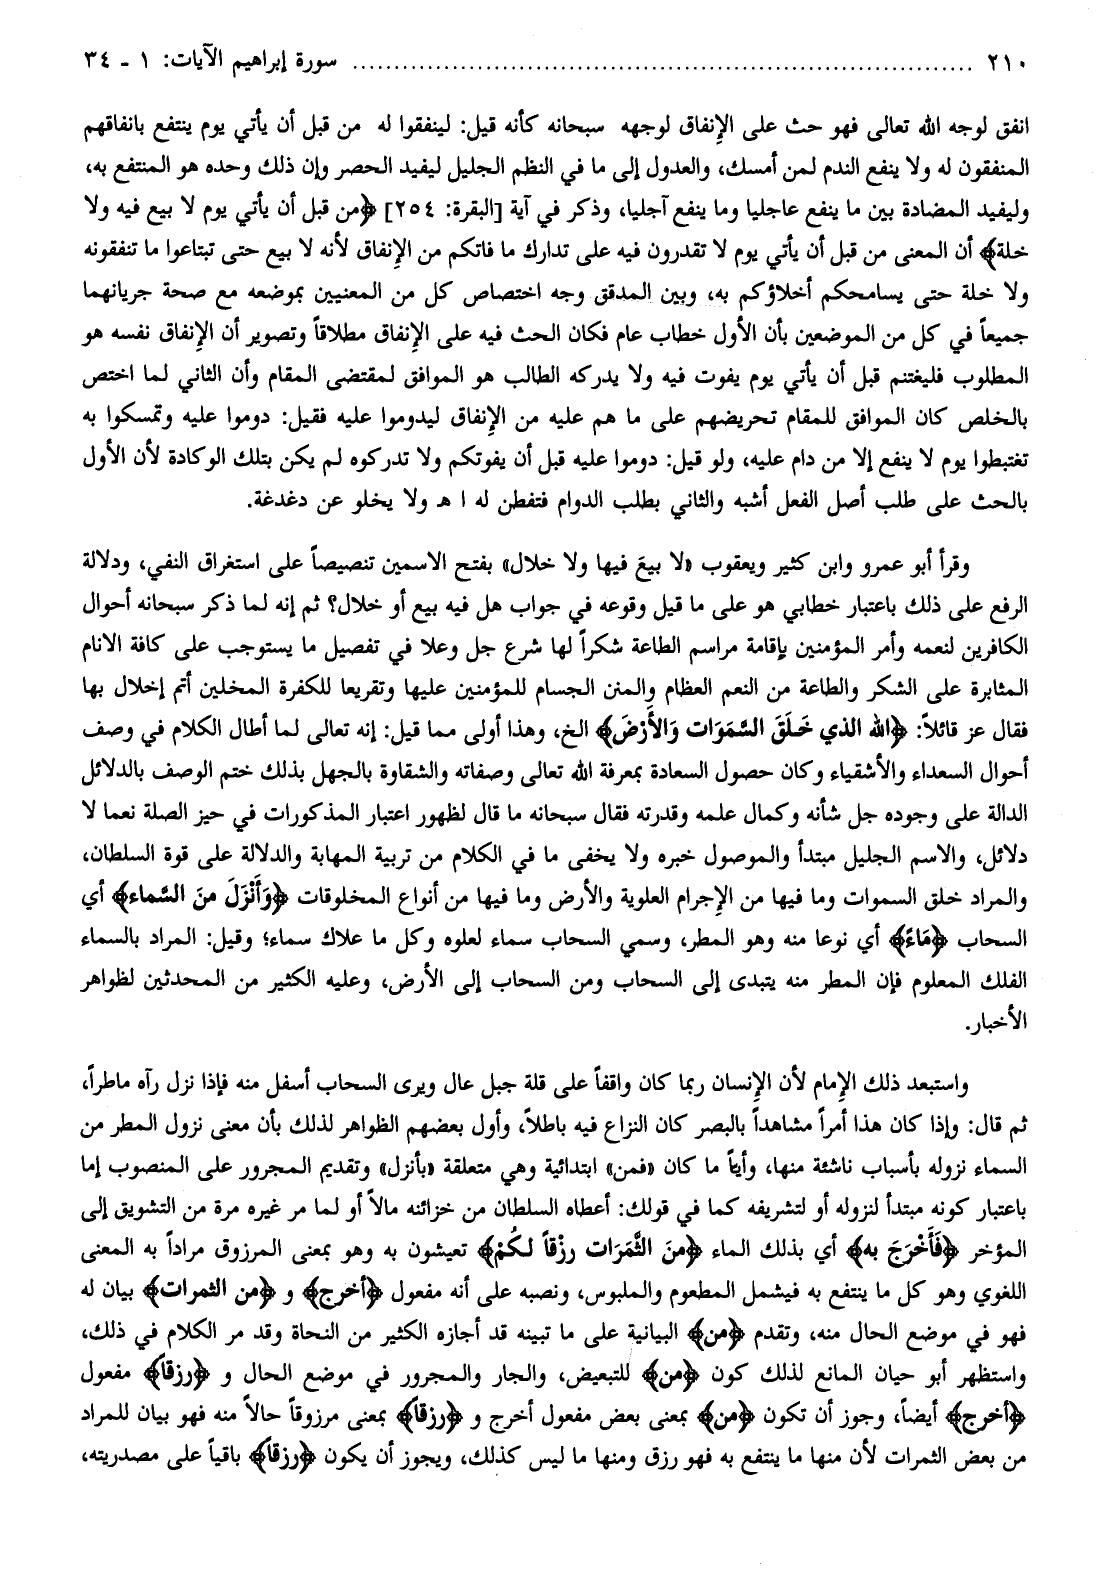 ٢١٠ ................................................................ سورة إبراهيم الآيات: ١ ـ ٣٤
انفق لوجه الله تعالى فهو حث على الإنفاق لوجهه سبحانه كأنه قيل: لينفقوا له من قبل أن يأتي يوم ينتفع بانفاقهم
المنفقون له ولا ينفع الندم لمن أمسك، والعدول إلى ما في النظم الجليل ليفيد الحصر وإن ذلك وحده هو المنتفع به،
وليفيد المضادة بين ما ينفع عاجليا وما ينفع آجليا، وذكر في آية [البقرة: ٢٥٤] ﴿من قبل أن يأتي يوم لا بيع فيه ولا
خلة﴾ أن المعنى من قبل أن يأتي يوم لا تقدرون فيه على تدارك ما فاتكم من الإنفاق لأنه لا بيع حتى تبتاعوا ما تنفقونه
ولا خلة حتى يسامحكم أخلاؤكم به، وبين المدقق وجه اختصاص كل من المعنيين بموضعه مع صحة جريانهما
جميعاً في كل من الموضعين بأن الأول خطاب عام فكان الحث فيه على الإنفاق مطلاقاً وتصوير أن الإنفاق نفسه هو
المطلوب فليغتنم قبل أن يأتي يوم يفوت فيه ولا يدركه الطالب هو الموافق لمقتضى المقام وأن الثاني لما اختص
بالخلص كان الموافق للمقام تحريضهم على ما هم عليه من الإنفاق ليدوموا عليه فقيل: دوموا عليه وتمسكوا به
تغتبطوا يوم لا ينفع إلا من دام عليه، ولو قيل: دوموا عليه قبل أن يفوتكم ولا تدركوه لم يكن بتلك الوكادة لأن الأول
بالحث على طلب أصل الفعل أشبه والثاني بطلب الدوام فتفطن له ا هـ ولا يخلو عن دغدغة.
وقرأ أبو عمرو وابن كثير ويعقوب «لا بيعَ فيها ولا خلال» بفتح الاسمين تنصيصاً على استغراق النفي، ودلالة
الرفع على ذلك باعتبار خطابي هو على ما قيل وقوعه في جواب هل فيه بيع أو خلال؟ ثم إنه لما ذكر سبحانه أحوال
الكافرين لنعمه وأمر المؤمنين بإقامة مراسم الطاعة شكراً لها شرع جل وعلا في تفصيل ما يستوجب على كافة الانام
المثابرة على الشكر والطاعة من النعم العظام والمنن الجسام للمؤمنين عليها وتقريعا للكفرة المخلين أتم إخلال بها
فقال عز قائلاً: ﴿الله الذي خَلَقَ السَّمَوَات وَالأَرْضَ﴾ الخ، وهذا أولى مما قيل: إنه تعالى لما أطال الكلام في وصف
أحوال السعداء والأشقياء وكان حصول السعادة بمعرفة الله تعالى وصفاته والشقاوة بالجهل بذلك ختم الوصف بالدلائل
الدالة على وجوده جل شأنه وكمال علمه وقدرته فقال سبحانه ما قال لظهور اعتبار المذكورات في حيز الصلة نعما لا
دلائل، والاسم الجليل مبتدأ والموصول خبره ولا يخفى ما في الكلام من تربية المهابة والدلالة على قوة السلطان،
والمراد خلق السموات وما فيها من الإجرام العلوية والأرض وما فيها من أنواع المخلوقات ﴿وَأَنْزَلَ منَ السَّماء﴾ أي
السحاب ﴿مَاءً﴾ أي نوعا منه وهو المطر، وسمي السحاب سماء لعلوه وكل ما علاك سماء؛ وقيل: المراد بالسماء
الفلك المعلوم فإن المطر منه يتبدى إلى السحاب ومن السحاب إلى الأرض، وعليه الكثير من المحدثين لظواهر
الأخبار.
واستبعد ذلك الإمام لأن الإنسان ربما كان واقفاً على قلة جبل عال ويرى السحاب أسفل منه فإذا نزل رآه ماطراً،
ثم قال: وإذا كان هذا أمراً مشاهداً بالبصر كان النزاع فيه باطلاً، وأول بعضهم الظواهر لذلك بأن معنى نزول المطر من
السماء نزوله بأسباب ناشئة منها، وأيّاً ما كان «فمن» ابتدائية وهي متعلقة «بأنزل» وتقديم المجرور على المنصوب إما
باعتبار كونه مبتدأ لنزوله أو لتشريفه كما في قولك: أعطاه السلطان من خزائنه مالاً أو لما مر غيره مرة من التشويق إلى
المؤخر ﴿فَأَخْرَجَ به﴾ أي بذلك الماء ﴿منَ الثَّمَرَات رزْقاً لكُمْ﴾ تعيشون به وهو بمعنى المرزوق مراداً به المعنى
اللغوي وهو كل ما ينتفع به فيشمل المطعوم والملبوس، ونصبه على أنه مفعول ﴿أخرج﴾ و ﴿من الثمرات﴾ بيان له
فهو في موضع الحال منه، وتقدم ﴿من﴾ البيانية على ما تبينه قد أجازه الكثير من النحاة وقد مر الكلام في ذلك،
واستظهر أبو حيان المانع لذلك كون ﴿من﴾ للتبعيض، والجار والمجرور في موضع الحال و ﴿رزقاً﴾ مفعول
﴿أخرج﴾ أيضاً، وجوز أن تكون ﴿من﴾ بمعنى بعض مفعول أخرج و ﴿رزقاً﴾ بمعنى مرزوقاً حالاً منه فهو بيان للمراد
من بعض الثمرات لأن منها ما ينتفع به فهو رزق ومنها ما ليس كذلك، ويجوز أن يكون ﴿رزقاً﴾ باقياً على مصدريته،